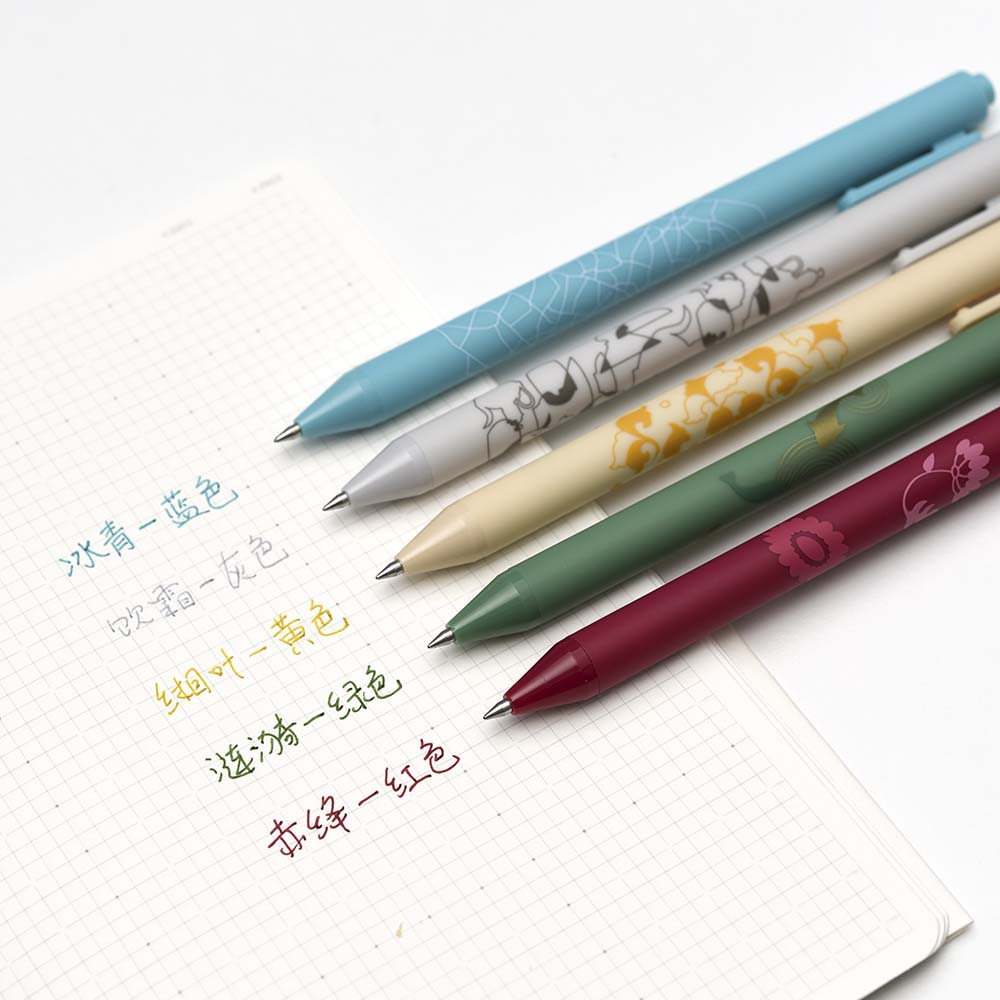 冰青一蓝色
饮霜一灰色
缃叶一黄色
涟漪一绿色
赤绛一红色